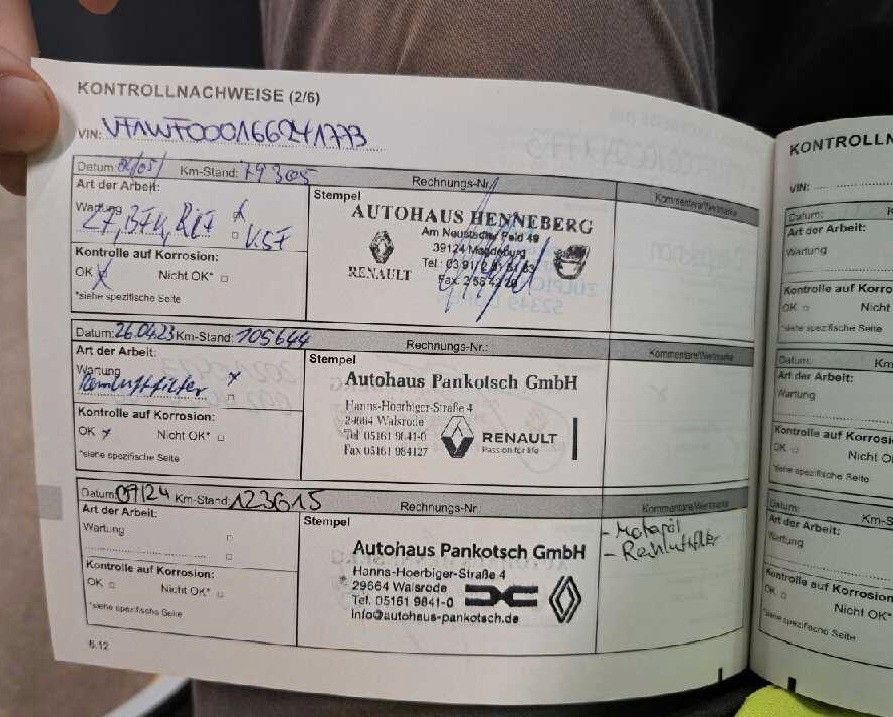 KONTROLLNACHWEISE (2/6)
VIN: VF1WF000166241773
Datum: Km-Stand: 79305 Rechnungs-Nr.
Art der Arbeit:
Stempel
Kommentare/Vermerke
Wartung
AUTOHAUS HENNEBERG
Am Neustädter Feld 49
39124 Magdeburg
Tel
Fax
RENAULT
Kontrolle auf Korrosion:
OK X Nicht OK*
*siehe spezifische Seite
Datum: 26.04.23 Km-Stand: 105644 Rechnungs-Nr.:
Kommentare/Vermerke
Art der Arbeit:
Stempel
Wartung x
Reinluftfilter
Autohaus Pankotsch GmbH
Hanns-Hoerbiger-Straße 4
29664 Walsrode
Tel 05161 9841-0
Fax 05161 984127
RENAULT
Passion for life
Kontrolle auf Korrosion:
OK x Nicht OK*
*siehe spezifische Seite
Datum: 07/24 Km-Stand: 123615 Rechnungs-Nr.
Kommentare/Vermerke
Art der Arbeit:
Stempel
Wartung
- Motoröl
- Reinluftfilter
Autohaus Pankotsch GmbH
Hanns-Hoerbiger-Straße 4
29664 Walsrode
Tel. 05161 9841-0
info@autohaus-pankotsch.de
Kontrolle auf Korrosion:
OK Nicht OK*
*siehe spezifische Seite
6.12
KONTROLLN
VIN:
Datum:
Art der Arbeit:
Wartung
Kontrolle auf Korro
OK Nicht
*siehe spezifische Seite
Datum: Km
Art der Arbeit:
Wartung
Kontrolle auf Korrosi
OK Nicht O
*siehe spezifische Seite
Datum: Km-S
Art der Arbeit:
Wartung
Kontrolle auf Korrosion
OK Nicht OK
*siehe spezifische Seite